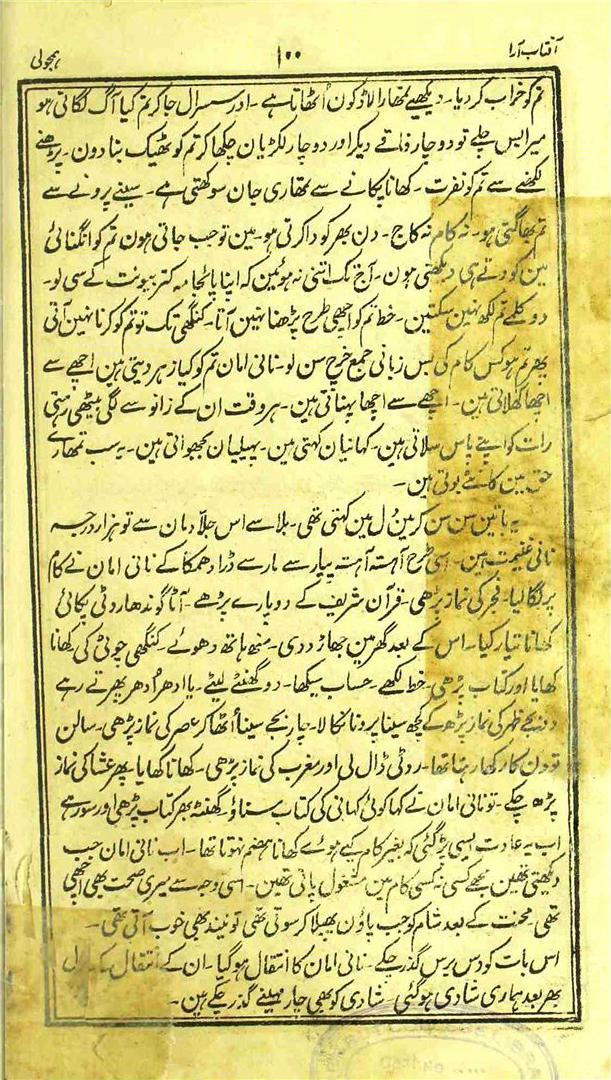 آفتاب آرا ۱۰۰ ہمجولی
تم کو خراب کر دیا۔ دیکھیے تمھارا لاڈ کون اُٹھاتا ہے۔ اور سسرال جا کر تم کیا آگ لگاتی ہو
میرا بس چلے تو دو چار فاقے دیکر اور دو چار لکڑیان چکھا کر تم کو ٹھیک بنا دون۔ پڑھنے
لکھنے سے تم کو نفرت۔ کھانا پکانے سے تمھاری جان سوکھتی ہے۔ سینے پرونے سے
تم بھاگتی ہو۔ نہ کام نہ کاج۔ دن بھر کودا کرتی ہو۔ مین تو جب جاتی ہون تم کو انگنائی
مین کودتے ہی دیکھتی ہون۔ آج تک اتنی نہ ہوئین کہ اپنا پائجامہ کتر بیونت کے سی لو۔
دو کلمے تم لکھ نہین سکتین۔ خط تم کو اچھی طرح پڑھنا نہین آتا۔ کنگھی تک تو تم کو کرنا نہین آتی
پھر تم ہو کس کام کی بس زبانی جمع خرچ سن لو۔ نانی امان تم کو کیا زہر دیتی ہین اچھے سے
اچھا کھلاتی ہین۔ اچھے سے اچھا پہناتی ہین۔ ہر وقت ان کے زانو سے لگی بیٹھی رہتی
رات کو اپنے پاس سلاتی ہین۔ کہانیان کہتی ہین۔ پہیلیان بجھواتی ہین۔ یہ سب تمھارے
حق مین کانٹے بوتی ہین۔
یہ باتین سن سن کر مین دل مین کہتی تھی۔ بلا سے اس جلاد مان سے تو ہزار درجہ
نانی غنیمت ہین۔ اسی طرح آہستہ آہستہ پیار سے مار سے ڈرا دھمکا کے نانی امان نے کام
پر لگا لیا۔ فجر کی نماز پڑھی۔ قرآن شریف کے دو پارے پڑھے۔ آٹا گوندھا روٹی پکائی
کھانا تیار کیا۔ اس کے بعد گھر مین جھاڑو دی۔ منھ ہاتھ دھوئے۔ کنگھی چوٹی کی کھانا
کھایا اور کتاب پڑھی۔ خط لکھے۔ حساب سیکھا۔ دو گھنٹے لیٹے۔ یا ادھر اُدھر پھرتے رہے
دو بجے ظہر کی نماز پڑھ کے کچھ سینا پرونا نکالا۔ چار بجے سینا اُٹھا کر عصر کی نماز پڑھی۔ سالن
تو دن کا رکھا رہتا تھا۔ روٹی ڈال لی اور مغرب کی نماز پڑھی۔ کھانا کھایا۔ پھر عشا کی نماز
پڑھ چکے۔ تو نانی امان نے کہا کوئی کہانی کی کتاب سناؤ۔ گھنٹہ بھر کتاب پڑھی اور سو رہے
اب یہ عادت ایسی پڑ گئی کہ بغیر کام کیے ہوے کھانا ہضم نہوتا تھا۔ اب نانی امان جب
دیکھتی تھین مجھے کسی نہ کسی کام مین مشغول پاتی تھین۔ اسی وجہ سے میری صحت بھی اچھی
تھی۔ محنت کے بعد شام کو جب پاؤن پھیلا کر سوتی تھی تو نیند بھی خوب آتی تھی۔
اس بات کو دس برس گذر چکے۔ نانی امان کا انتقال ہو گیا۔ ان کے انتقال کے سال
بھر بعد ہماری شادی ہو گئی۔ شادی کو بھی چار مہینے گذر چکے ہین۔